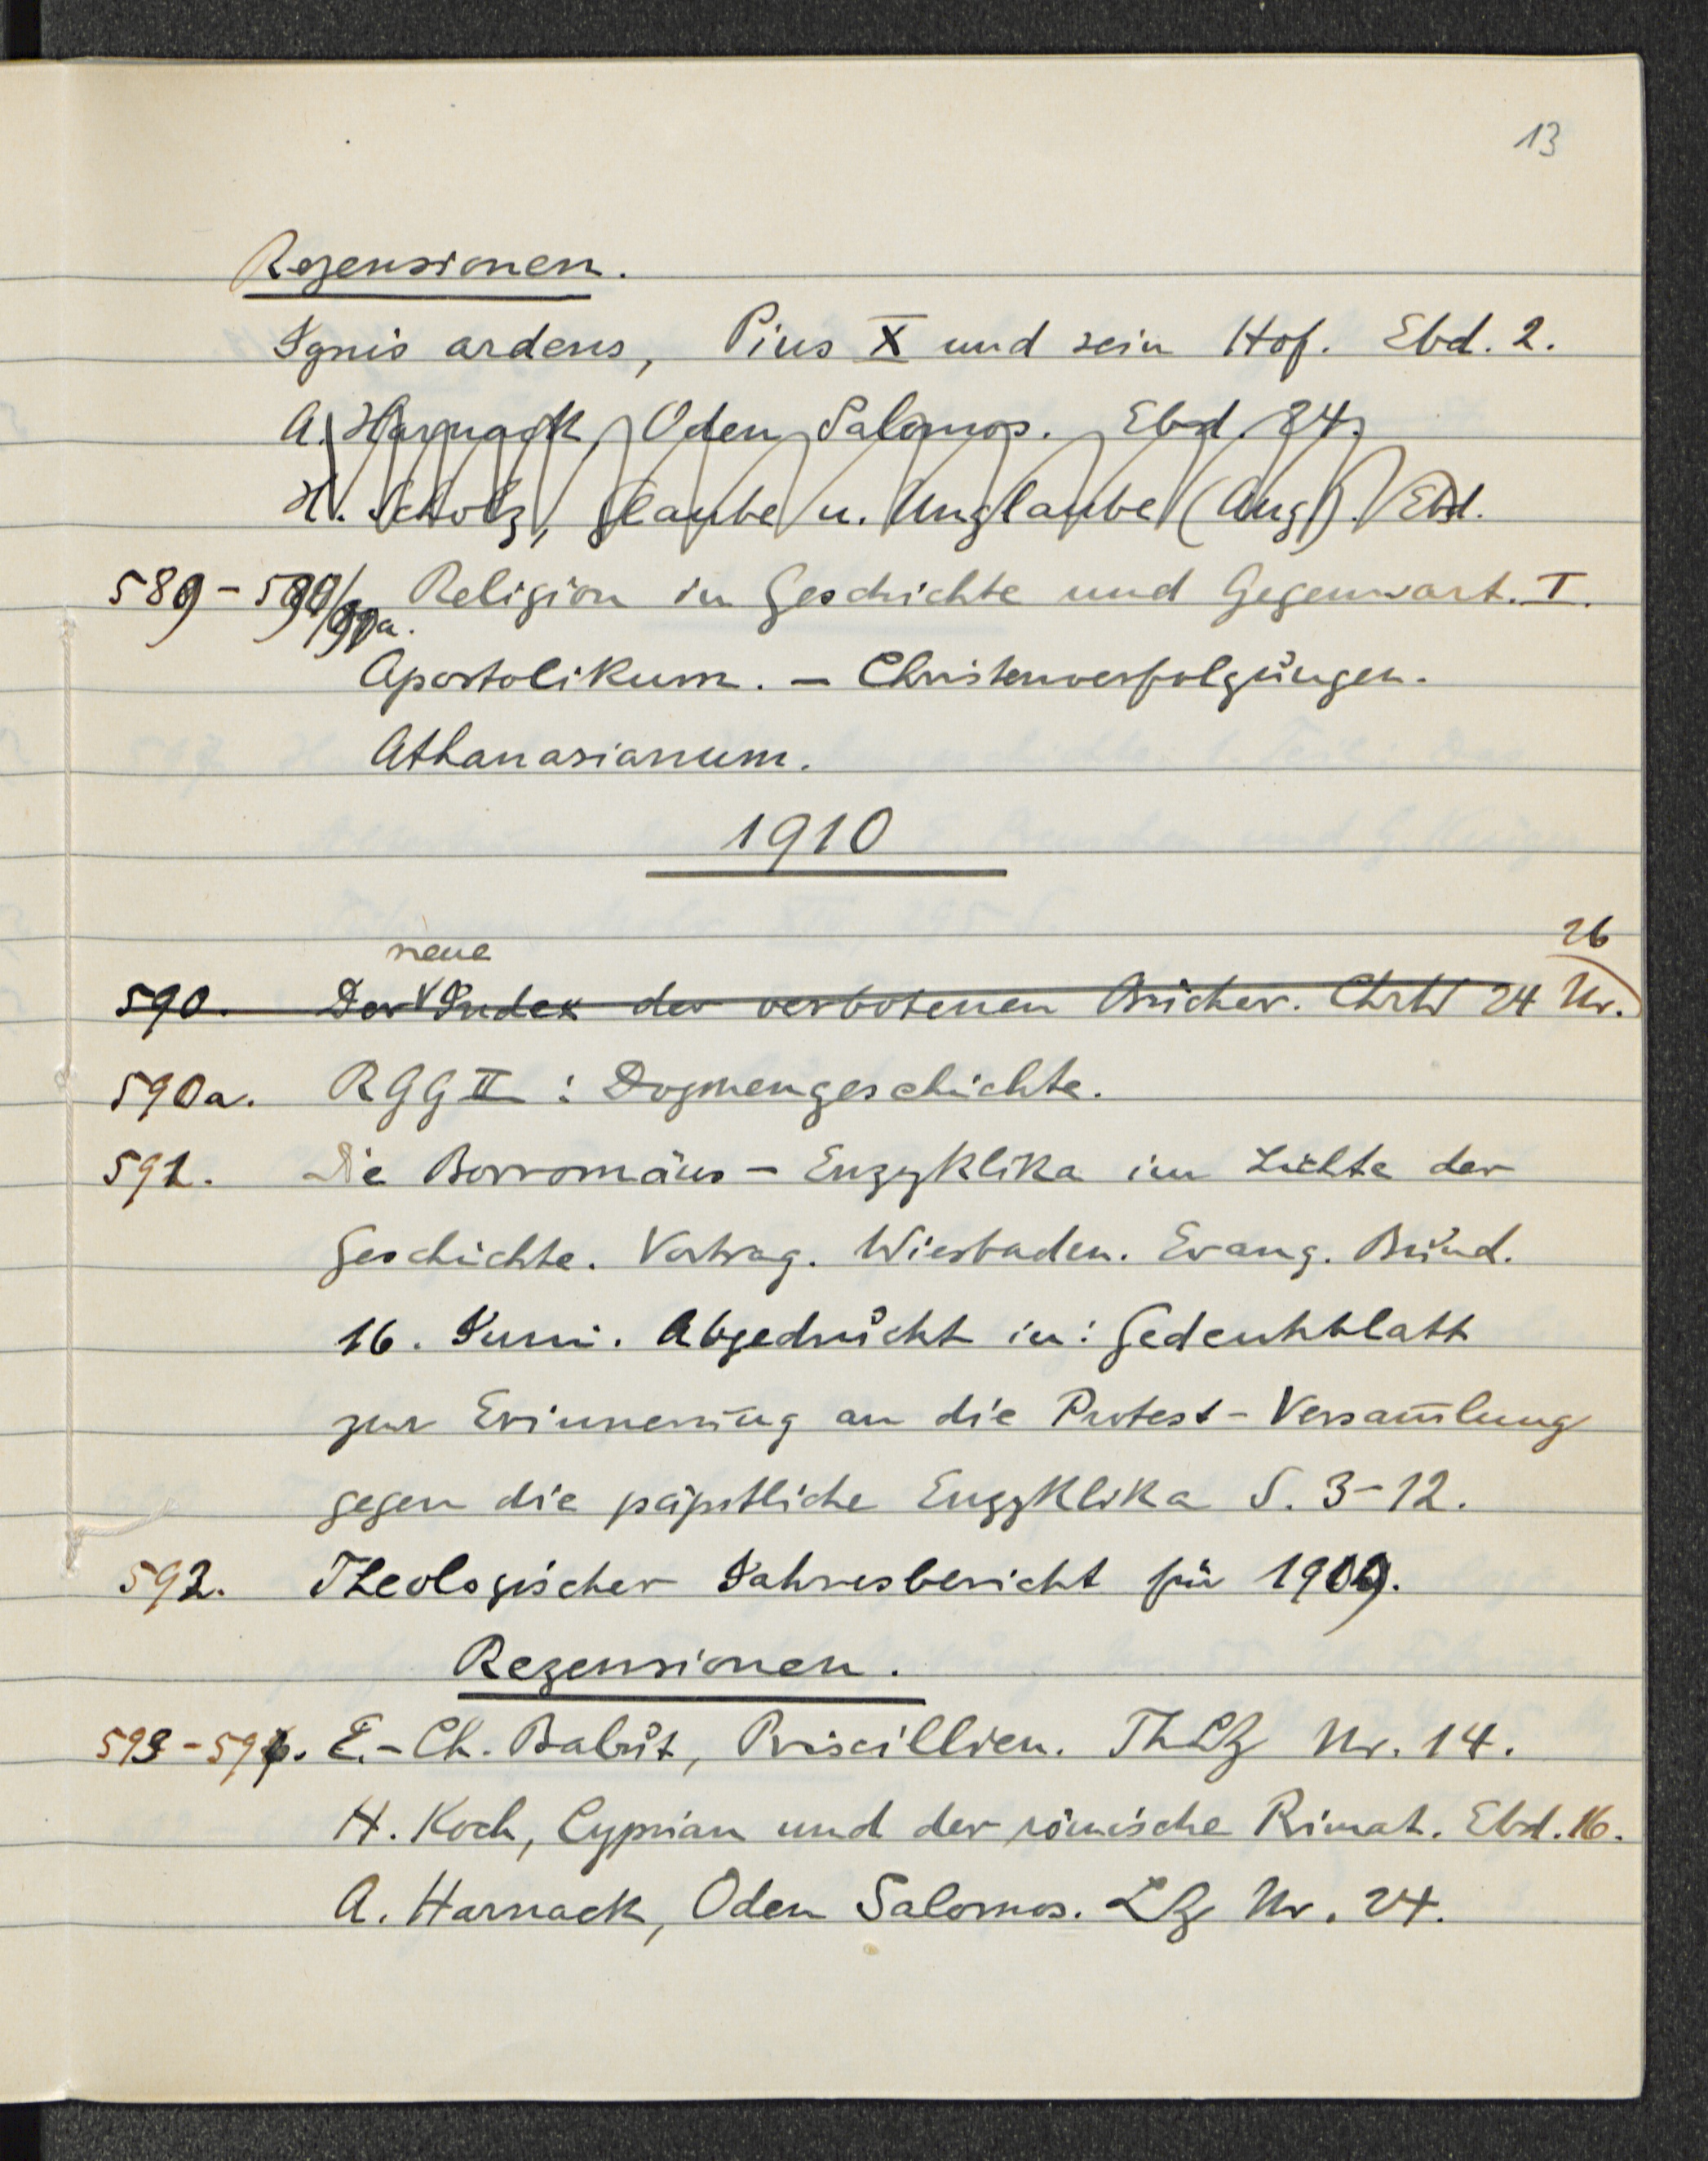 13
Rezensionen.
Ignis ardens, Pius X und sein Hof. Ebd. 2.
A. Harnack, Oden Salomos. Ebd. 24.
H. Scholz, Glaube u. Unglaube (Aug). Ebd.
589- Religion in Geschichte und Gegenwart. I.
Apostolikum. – Christenverfolgungen.
Athanasianum.
1910
neue 26
590. Der Index der verbotenen Bücher. ChrW 24 Nr.
590a. RGG II : Dogmengeschichte.
591. Die Borromäus-Enzyklika im Lichte der
Geschichte. Vortrag. Wiesbaden. Evang. Bund.
16. Juni. Abgedruckt in: Gedenkblatt
zur Erinnerung an die Protest-Versam̅lung
gegen die päpstliche Enzyklika S. 3-12.
592. Theologischer Jahresbericht für 1909.
Rezensionen.
593- E.-Ch. Babut, Priscillien. ThLZ Nr. 14.
H. Koch, Cyprian und der römische Primat. Ebd. 16.
A. Harnack, Oden Salomos. LZ Nr. 24.